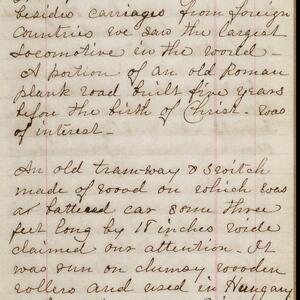 besides carriages from foreign
countries we saw the largest
locomotive in the world -
A portion of an old Roman
plank road built five years
before the birth of Christ - was
of interest -
An old tram-way & switch
made of wood on which was
a battered car some three
feet long by 18 inches wide
claimed our attention. It
was run on clumsy wooden
rollers and used in Hungary